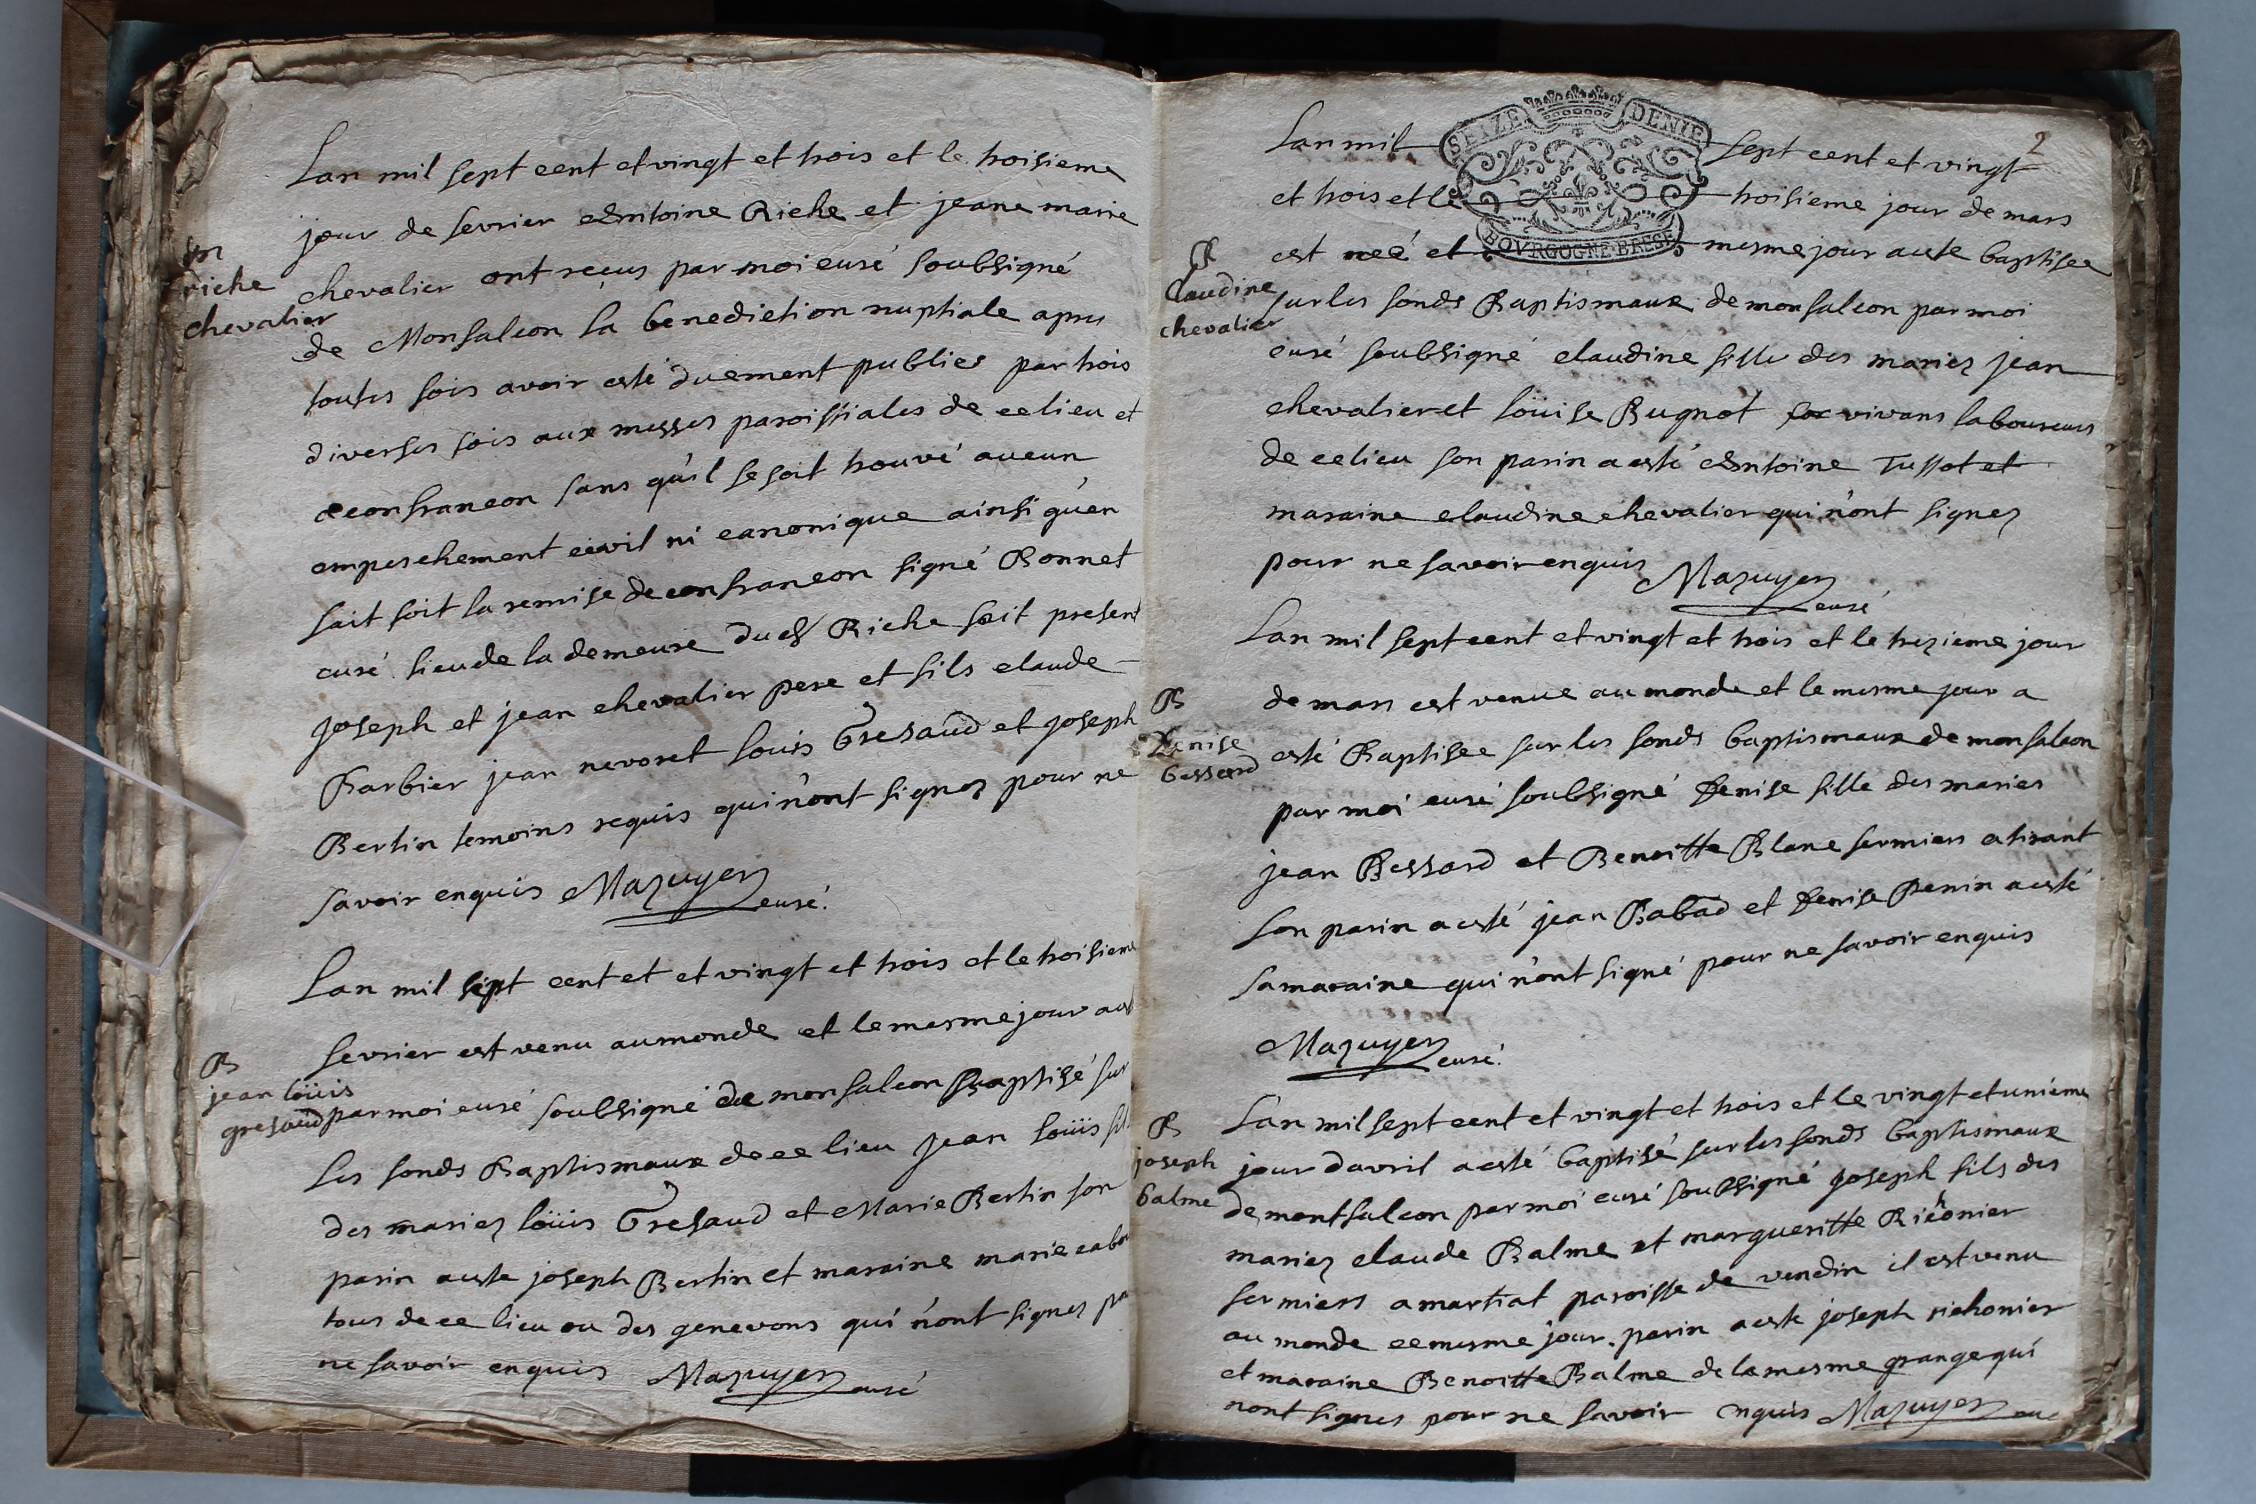 m
riche
chevalier
Lan mil sept cent et vingt et trois et le troisieme
jour de fevrier Antoine Riche et jeane marie
chevalier ont reçus par moi curé soubsigné
de Monfalcon la benediction nuptiale apres
toutes fois avoir esté duement publies par trois
diverses fois aux messes paroissiales de ce lieu et
de confrancon sans qu'il se soit trouvé aucun
empeschement civil ni canonique ainsi qu'en
fait foit la remise de confrancon signé Bonnet
curé lieu de la demeure dud Riche fait present
joseph et jean chevalier pere et fils claude
Barbier jean nevoret louis Gresaud et joseph
Bertin temoins requis qui n'ont signez pour ne
savoir enquis Mazuyer curé.
B
jean loüis
gresaud
Lan mil sept cent et et vingt et trois et le troisieme
fevrier est venu au monde et le mesme jour a esté
par moi curé soubsigné de monfalcon Baptisé sur
les fonds Baptismaux de ce lieu jean loüis fils
des mariez loüis Gresaud et Marie Bertin son
parin a este joseph Bertin et maraine marie
tous de ce lieu ou des genevons qui n'ont signez
ne savoir enquis Mazuyer curé
2
SEIZE DENIE
BOVRGOGNE BRESE
Lan mil sept cent et vingt
et trois et le troisieme jour de mars
est neé et mesme jour a este baptisee
B
Claudine
chevalier
sur les fonds Baptismaux de monfalcon par moi
curé soubsigné claudine fille des mariez jean
chevalier et loüise Bugnot vivans laboureurs
de ce lieu son parin a esté Antoine Tussot et
maraine claudine chevalier qui n'ont signez
pour ne savoir enquis Mazuyer
curé
Lan mil sept cent et vingt et trois et le trezieme jour
B
Denise
bessard
de mars est venue au monde et le mesme jour a
esté Baptisee sur les fonds baptismaux de monfalcon
par moi curé soubsigné Denise fille des maries
jean Bessard et Benoitte Blanc fermiers a tirant
son parin a esté jean Babad et Denise Penin a esté
sa maraine qui n'ont signé pour ne savoir enquis
Mazuyer curé.
B
joseph
balme
L'an mil sept cent et vingt et trois et le vingt et unieme
jour d'avril a esté baptisé sur les fonds baptismaux
de montfalcon par moi curé soubsigné joseph fils des
mariez claude Balme et margueritte Richonier
fermiers a martiat paroisse de vendin il est venu
au monde ce mesme jour. parin a este joseph richonier
et maraine Benoitte Balme de la mesme grange qui
n'ont signes pour ne savoir enquis Mazuyer curé